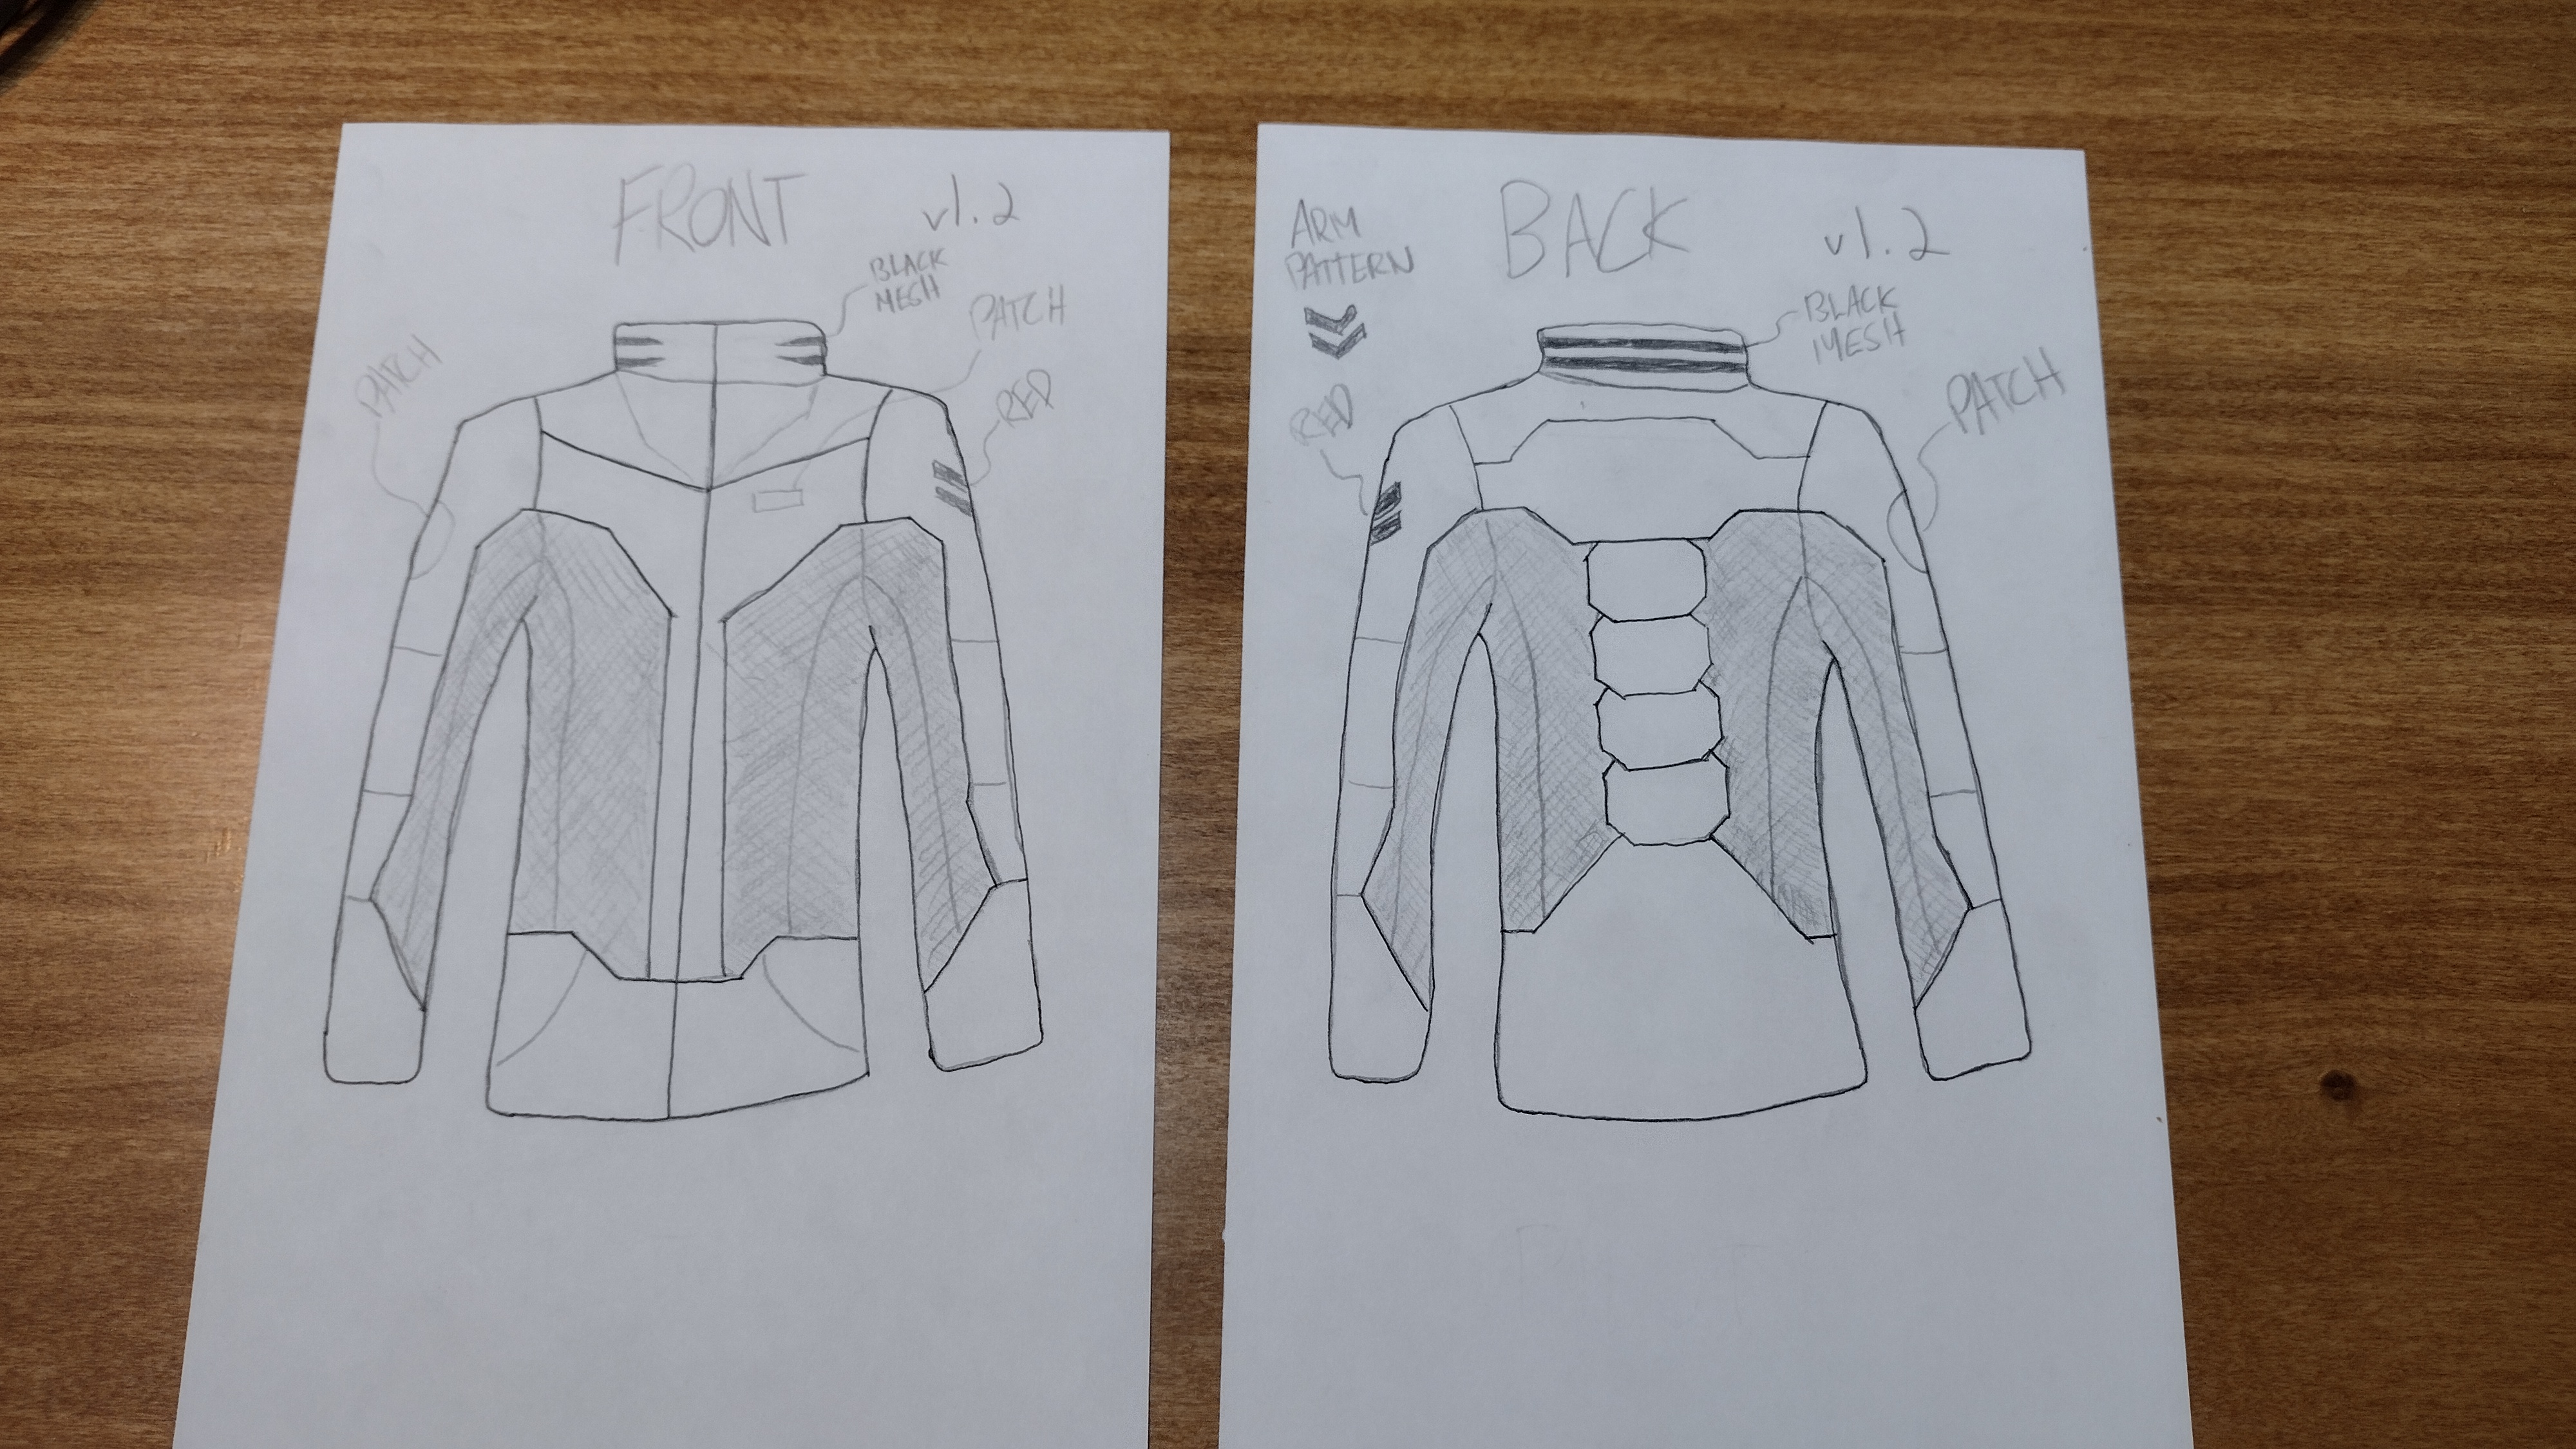 FRONT
v1.2
BLACK
MESH
PATCH
PATCH
RED
ARM
PATTERN
BACK
v1.2
BLACK
MESH
RED
PATCH